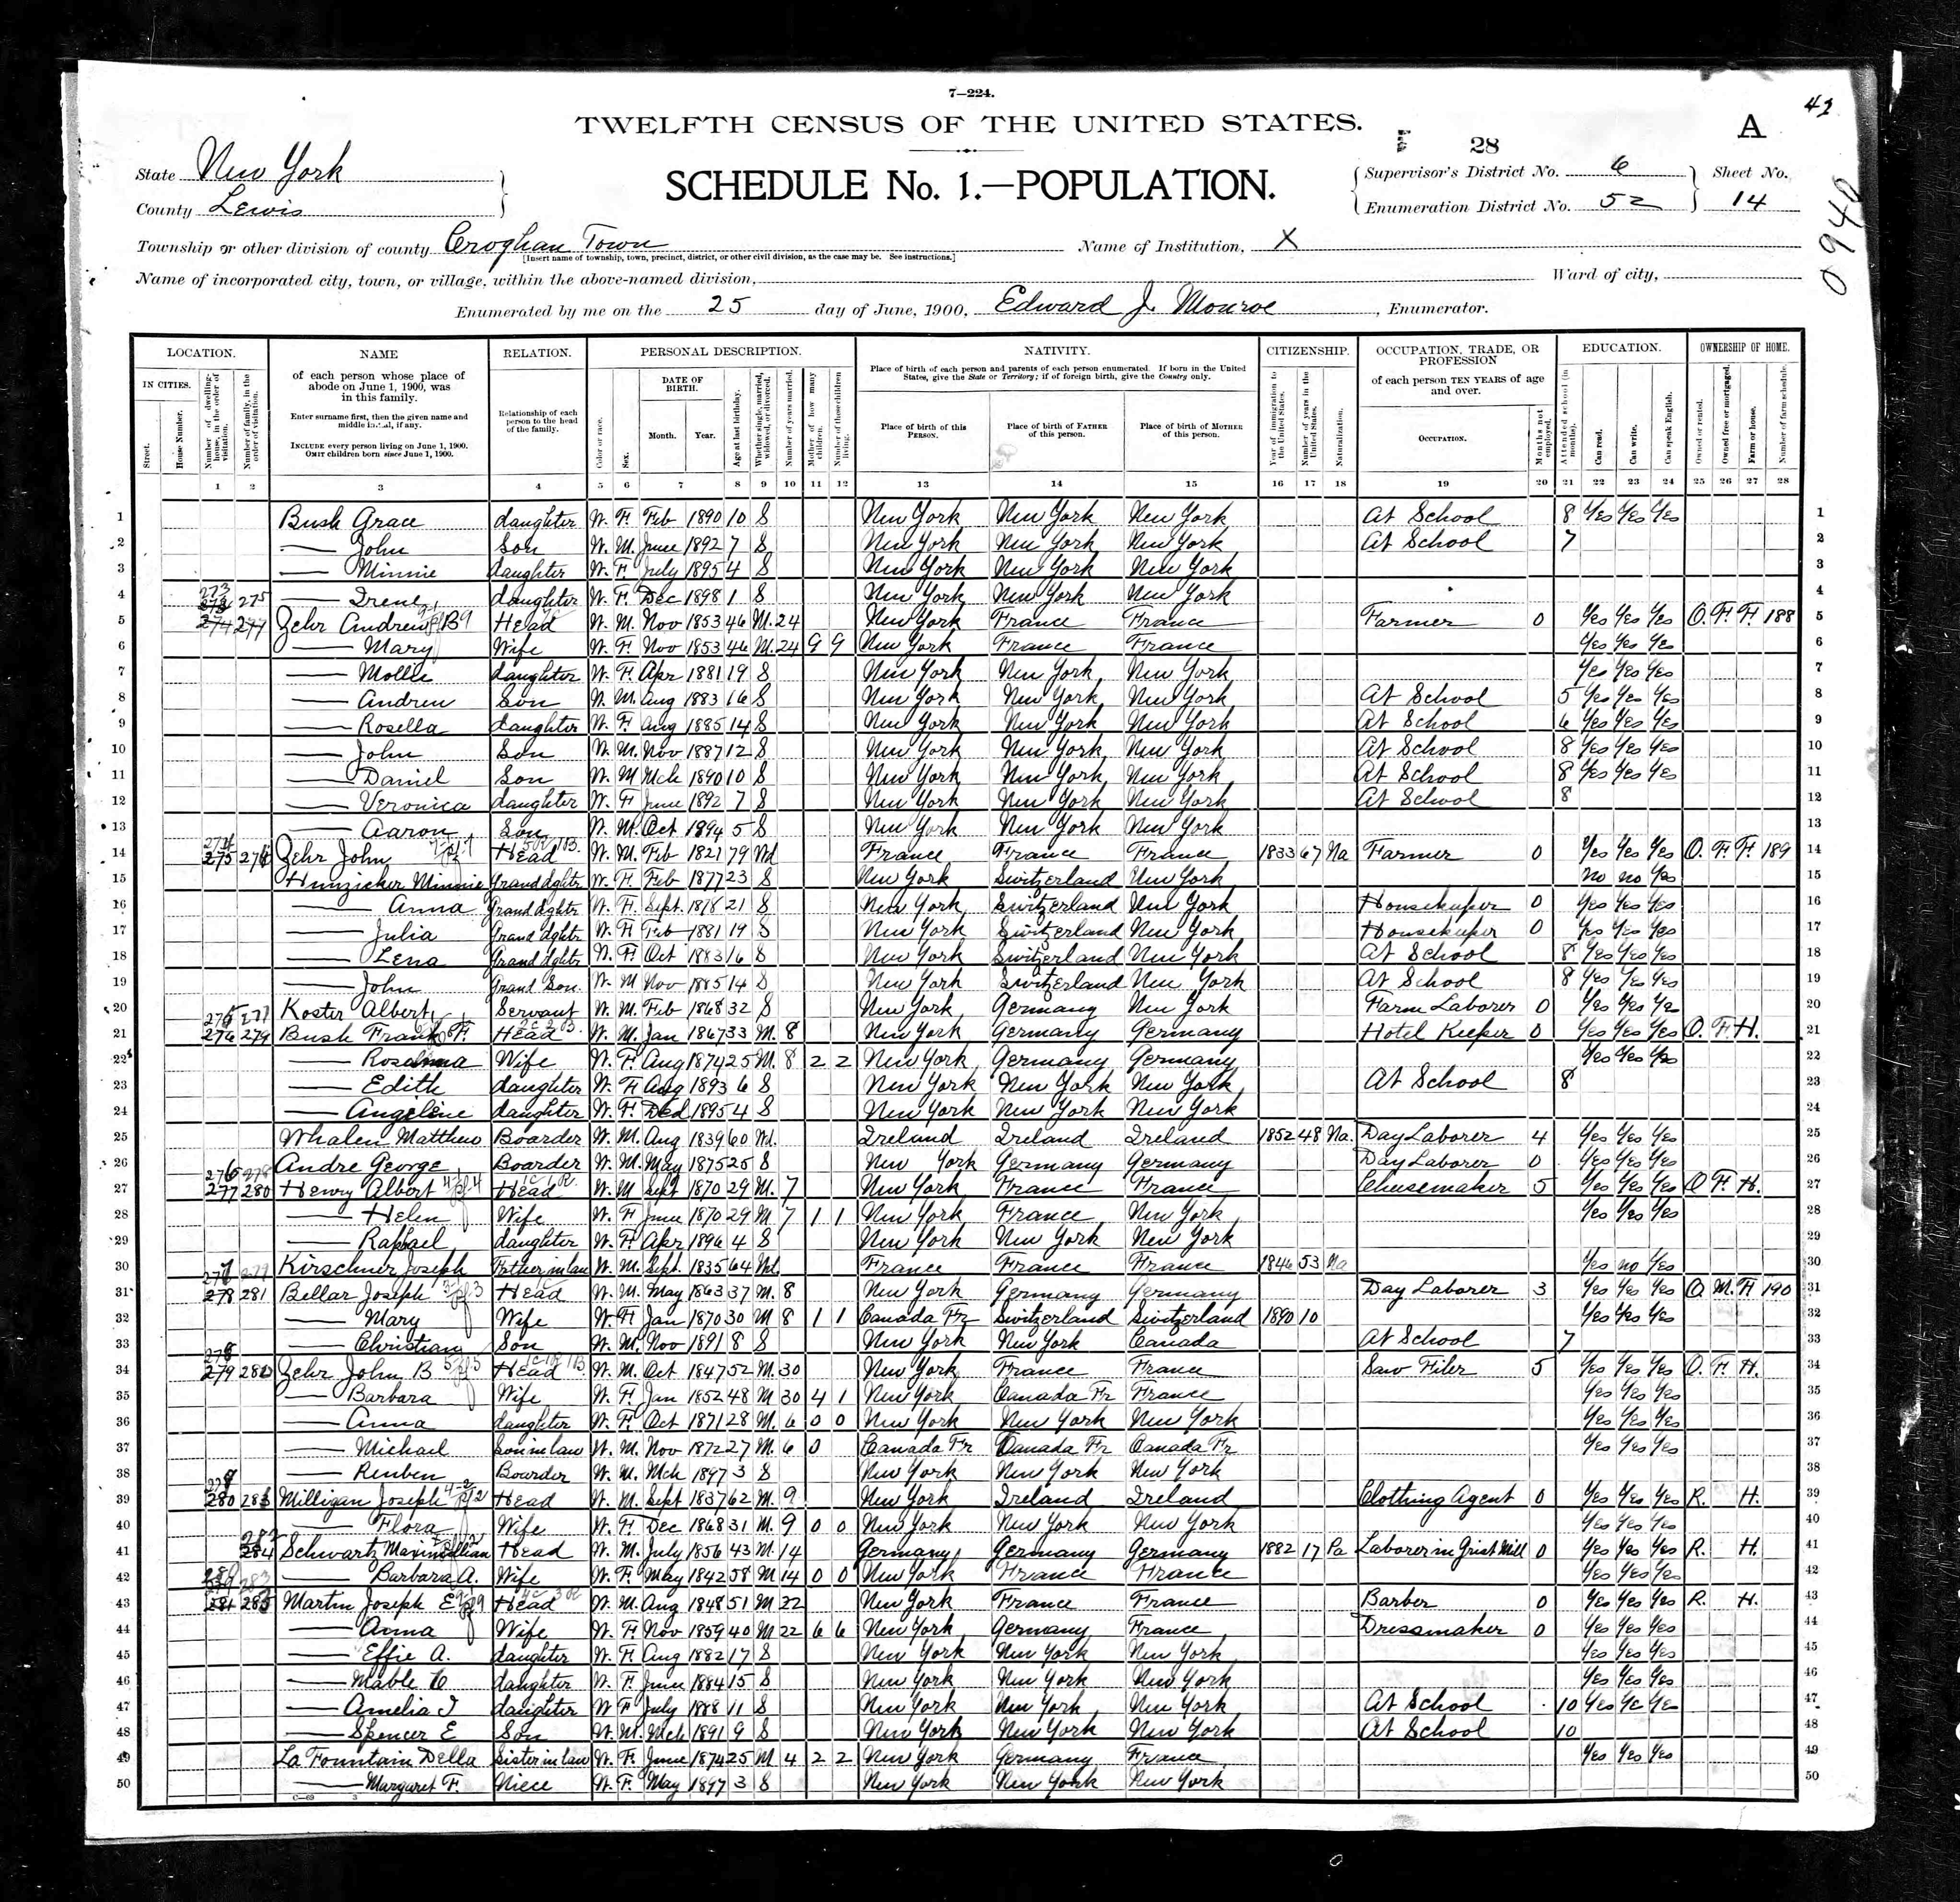 7—224.
TWELFTH CENSUS OF THE UNITED STATES.
A
28
State New York
SCHEDULE No. 1.—POPULATION.
Supervisor's District No. 6 Sheet No.
County Lewis
Enumeration District No. 52 14
0940
Township or other division of county Croghan Town Name of Institution, X
[Insert name of township, town, precinct, district, or other civil division, as the case may be. See instructions.]
Name of incorporated city, town, or village, within the above-named division, Ward of city,
Enumerated by me on the 25 day of June, 1900, Edward J. Monroe, Enumerator.
LOCATION. NAME RELATION. PERSONAL DESCRIPTION. NATIVITY. CITIZENSHIP. OCCUPATION, TRADE, OR PROFESSION EDUCATION. OWNERSHIP OF HOME.
IN CITIES. Street. House Number. Number of dwelling-house, in the order of visitation. Number of family, in the order of visitation.
of each person whose place of abode on June 1, 1900, was in this family.
Enter surname first, then the given name and middle initial, if any.
INCLUDE every person living on June 1, 1900. OMIT children born since June 1, 1900.
Relationship of each person to the head of the family.
Color or race. Sex. DATE OF BIRTH. Month. Year. Age at last birthday. Whether single, married, widowed, or divorced. Number of years married. Mother of how many children. Number of these children living.
Place of birth of each person and parents of each person enumerated. If born in the United States, give the State or Territory; if of foreign birth, give the Country only.
Place of birth of this PERSON. Place of birth of FATHER of this person. Place of birth of MOTHER of this person.
Year of immigration to the United States. Number of years in the United States. Naturalization.
of each person TEN YEARS of age and over.
OCCUPATION. Months not employed. Attended school (in months). Can read. Can write. Can speak English. Owned or rented. Owned free or mortgaged. Farm or house. Number of farm schedule.
1 2 3 4 5 6 7 8 9 10 11 12 13 14 15 16 17 18 19 20 21 22 23 24 25 26 27 28
1 Bush Grace daughter W. F. Feb 1890 10 S New York New York New York At School 8 Yes Yes Yes 1
2 — John Son W. M. June 1892 7 S New York New York New York At School 7 2
3 — Minnie daughter W. F. July 1895 4 S New York New York New York 3
4 — Irene daughter W. F. Dec 1898 1 S New York New York New York 4
5 273 275 274 277 Zehr Andrew B Head W. M. Nov 1853 46 M. 24 New York France France Farmer 0 Yes Yes Yes O. F. F. 188 5
6 — Mary Wife W. F. Nov 1853 46 M. 24 9 9 New York France France Yes Yes Yes 6
7 — Mollie daughter W. F. Apr 1881 19 S New York New York New York Yes Yes Yes 7
8 — Andrew Son W. M. Aug 1883 16 S New York New York New York At School 5 Yes Yes Yes 8
9 — Rosella daughter W. F. Aug 1885 14 S New York New York New York At School 6 Yes Yes Yes 9
10 — John Son W. M. Nov 1887 12 S New York New York New York At School 8 Yes Yes Yes 10
11 — Daniel Son W. M Mch 1890 10 S New York New York New York At School 8 Yes Yes Yes 11
12 — Veronica daughter W. F June 1892 7 S New York New York New York At School 8 12
13 — Aaron Son W. M. Oct 1894 5 S New York New York New York 13
14 274 275 276 Zehr John Head W. M. Feb 1821 79 Wd France France France 1833 67 Na Farmer 0 Yes Yes Yes O. F. F. 189 14
15 Hunzicker Minnie Grand dghtr W. F. Feb 1877 23 S New York Switzerland New York no no Yes 15
16 — Anna Grand dghtr W. F. Sept. 1878 21 S New York Switzerland New York Housekeeper 0 Yes Yes Yes 16
17 — Julia Grand dghtr W. F Feb 1881 19 S New York Switzerland New York Housekeeper 0 Yes Yes Yes 17
18 — Lena Grand dghtr W. F. Oct 1883 16 S New York Switzerland New York At School 8 Yes Yes Yes 18
19 — John Grand Son. W. M Nov 1885 14 S New York Switzerland New York At School 8 Yes Yes Yes 19
20 Koster Albert Servant W. M. Feb 1868 32 S New York Germany New York Farm Laborer 0 Yes Yes Yes 20
21 275 277 276 279 Bush Frank F. Head W. M. Jan 1867 33 M. 8 New York Germany Germany Hotel Keeper 0 Yes Yes Yes O. F. H. 21
22 — Roseanna Wife W. F. Aug 1874 25 M. 8 2 2 New York Germany Germany Yes Yes Yes 22
23 — Edith daughter W. F Aug 1893 6 S New York New York New York At School 8 23
24 — Angeline daughter W. F. Dec 1895 4 S New York New York New York 24
25 Whalen Matthew Boarder W. M. Aug 1839 60 Wd. Ireland Ireland Ireland 1852 48 Na. Day Laborer 4 Yes Yes Yes 25
26 Andre George Boarder W. M. May 1875 25 S New York Germany Germany Day Laborer 0 Yes Yes Yes 26
27 276 278 277 280 Henry Albert Head W. M Sept 1870 29 M. 7 New York France France Cheesemaker 5 Yes Yes Yes O F. H. 27
28 — Helen Wife W. F June 1870 29 M 7 1 1 New York France New York Yes Yes Yes 28
29 — Raphael daughter W. F Apr 1896 4 S New York New York New York 29
30 Kirschner Joseph Father in law W. M. Sept. 1835 64 Wd France France France 1846 53 Na Yes no Yes 30
31 277 279 278 281 Bellar Joseph Head W. M. May 1863 37 M. 8 New York Germany Germany Day Laborer 3 Yes Yes Yes O. M. F 190 31
32 — Mary Wife W. F Jan 1870 30 M 8 1 1 Canada Fr Switzerland Switzerland 1890 10 Yes Yes Yes 32
33 — Christian Son W. M. Nov 1891 8 S New York New York Canada At School 7 33
34 278 279 282 Zehr John B Head W. M. Oct 1847 52 M. 30 New York France France Saw Filer 5 Yes Yes Yes O. F. H. 34
35 — Barbara Wife W. F. Jan 1852 48 M 30 4 1 New York Canada Fr France Yes Yes Yes 35
36 — Anna daughter W. F. Oct 1871 28 M. 6 0 0 New York New York New York Yes Yes Yes 36
37 — Michael Son in law W. M. Nov 1872 27 M. 6 0 Canada Fr Canada Fr Canada Fr Yes Yes Yes 37
38 — Reuben Boarder W. M. Mch 1897 3 S New York New York New York 38
39 280 283 Milligan Joseph Head W. M. Sept 1837 62 M. 9 New York Ireland Ireland Clothing Agent 0 Yes Yes Yes R. H. 39
40 — Flora Wife W. F Dec 1868 31 M. 9 0 0 New York New York New York Yes Yes Yes 40
41 282 284 Schwartz Maximillian Head W. M. July 1856 43 M. 14 Germany Germany Germany 1882 17 Pa Laborer in Grist Mill 0 Yes Yes Yes R. H. 41
42 — Barbara A. Wife W. F. May 1842 58 M 14 0 0 New York France France Yes Yes Yes 42
43 281 285 Martin Joseph E Head W. M. Aug 1848 51 M 22 New York France France Barber 0 Yes Yes Yes R. H. 43
44 — Anna Wife W. F Nov 1859 40 M 22 6 6 New York Germany France Dressmaker 0 Yes Yes Yes 44
45 — Effie A. daughter W. F. Aug 1882 17 S New York New York New York Yes Yes Yes 45
46 — Mable daughter W. F. June 1884 15 S New York New York New York Yes Yes Yes 46
47 — Amelia J daughter W F July 1888 11 S New York New York New York At School 10 Yes Ye Yes 47
48 — Spencer E Son W. M. Mch 1891 9 S New York New York New York At School 10 48
49 La Fountain Della Sister in law W. F. June 1874 25 M 4 2 2 New York Germany France Yes Yes Yes 49
50 — Margaret F. Niece W. F. May 1897 3 S New York New York New York 50